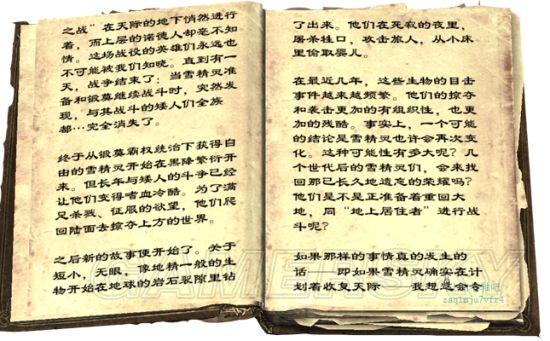 之战”在天际的地下悄然进行
着，而上层的诺德人却毫不知
情。这场战役的英雄们永远也
不可能被我们知晓。直到有一
天，战争结束了；当雪精灵准
备和锻莫继续战斗时，突然发
现，与其战斗的矮人们全族
都…完全消失了。
终于从锻莫霸权统治下获得自
由的雪精灵开始在黑降繁衍开
来。但长年与矮人的斗争已经
让他们变得嗜血冷酷。为了满
足杀戮、征服的欲望，他们爬
回陆面去掠夺上方的世界。
之后新的故事便开始了。关于
短小，无眼，像地精一般的生
物开始在地球的岩石裂隙里钻
了出来。他们在死寂的夜里，
屠杀牲口，攻击旅人，从小床
里偷取婴儿。
在最近几年，这些生物的目击
事件越来越频繁。他们的掠夺
和袭击更加的有组织性，也更
加的残酷。事实上，一个可能
的结论是雪精灵也许会再次变
化。这种可能性有多大呢？几
个世代后的雪精灵们，会来找
回那已长久地遗忘的荣耀吗？
他们是不是正准备着重回大
地，同“地上居住者”进行战
斗呢？
如果那样的事情真的发生的
话 即如果雪精灵确实在计
划着收复天际 我想 会令
GAMERSKY
zaq1mju7vfr4